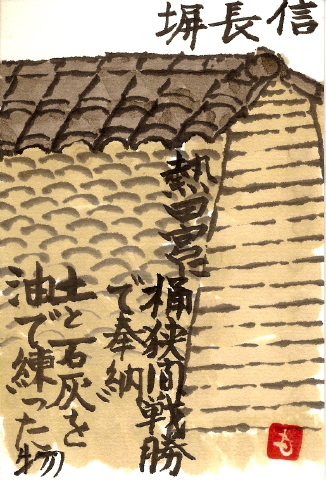 信長塀
熱田宮
桶狭間戦勝
で奉納
土と石灰を
油で練った物
も